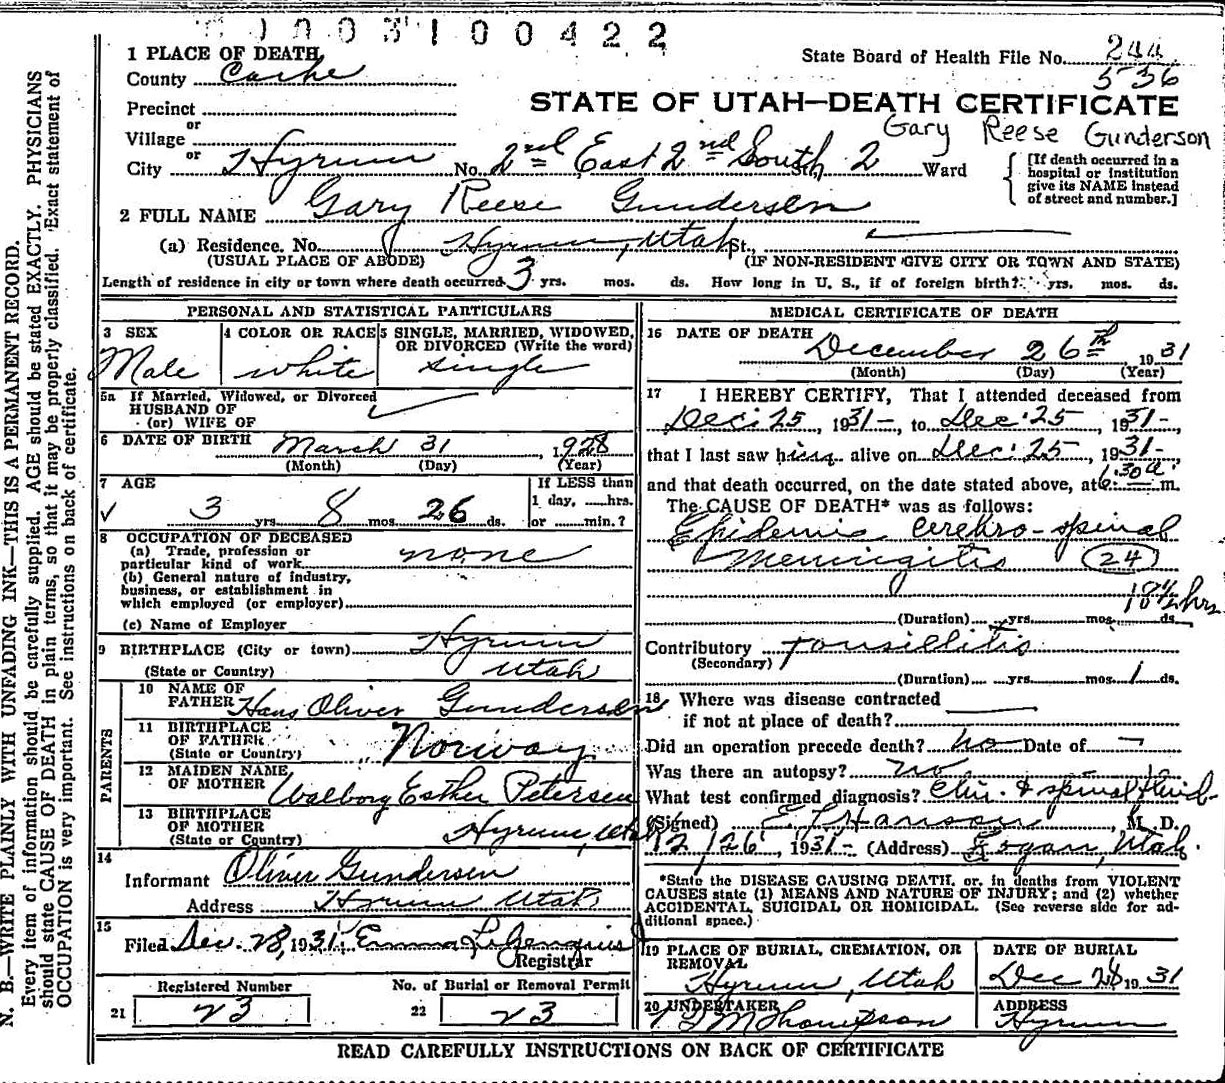 1003100422
1 PLACE OF DEATH
State Board of Health File No. 244
County Cache
536
Precinct
STATE OF UTAH—DEATH CERTIFICATE
or
Village
Gary Reese Gunderson
or
City Hyrum No. 2nd East 2nd South St, 2 Ward
[If death occurred in a
hospital or institution
give its NAME instead
of street and number.]
2 FULL NAME Gary Reese Gundersen
(a) Residence. No. Hyrum, Utah St.
(USUAL PLACE OF ABODE) (IF NON-RESIDENT GIVE CITY OR TOWN AND STATE)
Length of residence in city or town where death occurred 3 yrs. mos. ds. How long in U. S., if of foreign birth? yrs. mos. ds.
PERSONAL AND STATISTICAL PARTICULARS
3 SEX
Male
4 COLOR OR RACE
white
5 SINGLE, MARRIED, WIDOWED,
OR DIVORCED (Write the word)
single
5a If Married, Widowed, or Divorced
HUSBAND OF
(or) WIFE OF
6 DATE OF BIRTH March 31, 1928
(Month) (Day) (Year)
7 AGE
3 yrs. 8 mos. 26 ds.
If LESS than
1 day, ......hrs.
or ......min.?
8 OCCUPATION OF DECEASED
(a) Trade, profession or
particular kind of work none
(b) General nature of industry,
business, or establishment in
which employed (or employer)
(c) Name of Employer
9 BIRTHPLACE (City or town) Hyrum
(State or Country) Utah
PARENTS
10 NAME OF
FATHER Hans Oliver Gundersen
11 BIRTHPLACE
OF FATHER
(State or Country) Norway
12 MAIDEN NAME
OF MOTHER Walborg Esther Petersen
13 BIRTHPLACE
OF MOTHER
(State or Country) Hyrum, Utah
14
Informant Oliver Gundersen
Address Hyrum Utah
15
Filed Dec. 28, 1931 Emma
Registrar
Registered Number
21 23
No. of Burial or Removal Permit
22 23
MEDICAL CERTIFICATE OF DEATH
16 DATE OF DEATH
December 26th 1931
(Month) (Day) (Year)
17 I HEREBY CERTIFY, That I attended deceased from
Dec. 25, 1931-, to Dec. 25, 1931-
that I last saw him alive on Dec. 25, 1931-
and that death occurred, on the date stated above, at 6:30 a. m.
The CAUSE OF DEATH* was as follows:
Epidemic cerebro-spinal
Meningitis (24)
18 1/2 hrs
(Duration) yrs. mos. ds.
Contributory Tonsillitis
(Secondary)
(Duration) yrs. mos. 1 ds.
18 Where was disease contracted
if not at place of death?
Did an operation precede death? no Date of
Was there an autopsy? no
What test confirmed diagnosis? Clin. & spinal fluid
(Signed) Hanson, M. D.
12/26, 1931- (Address) Logan, Utah.
*State the DISEASE CAUSING DEATH, or, in deaths from VIOLENT
CAUSES state (1) MEANS AND NATURE OF INJURY; and (2) whether
ACCIDENTAL, SUICIDAL OR HOMICIDAL. (See reverse side for ad-
ditional space.)
19 PLACE OF BURIAL, CREMATION, OR
REMOVAL
Hyrum, Utah
DATE OF BURIAL
Dec 28 1931
20 UNDERTAKER
Thompson
ADDRESS
Hyrum
READ CAREFULLY INSTRUCTIONS ON BACK OF CERTIFICATE
N. B.—WRITE PLAINLY WITH UNFADING INK—THIS IS A PERMANENT RECORD.
Every item of information should be carefully supplied. AGE should be stated EXACTLY. PHYSICIANS
should state CAUSE OF DEATH in plain terms, so that it may be properly classified. Exact statement of
OCCUPATION is very important. See instructions on back of certificate.